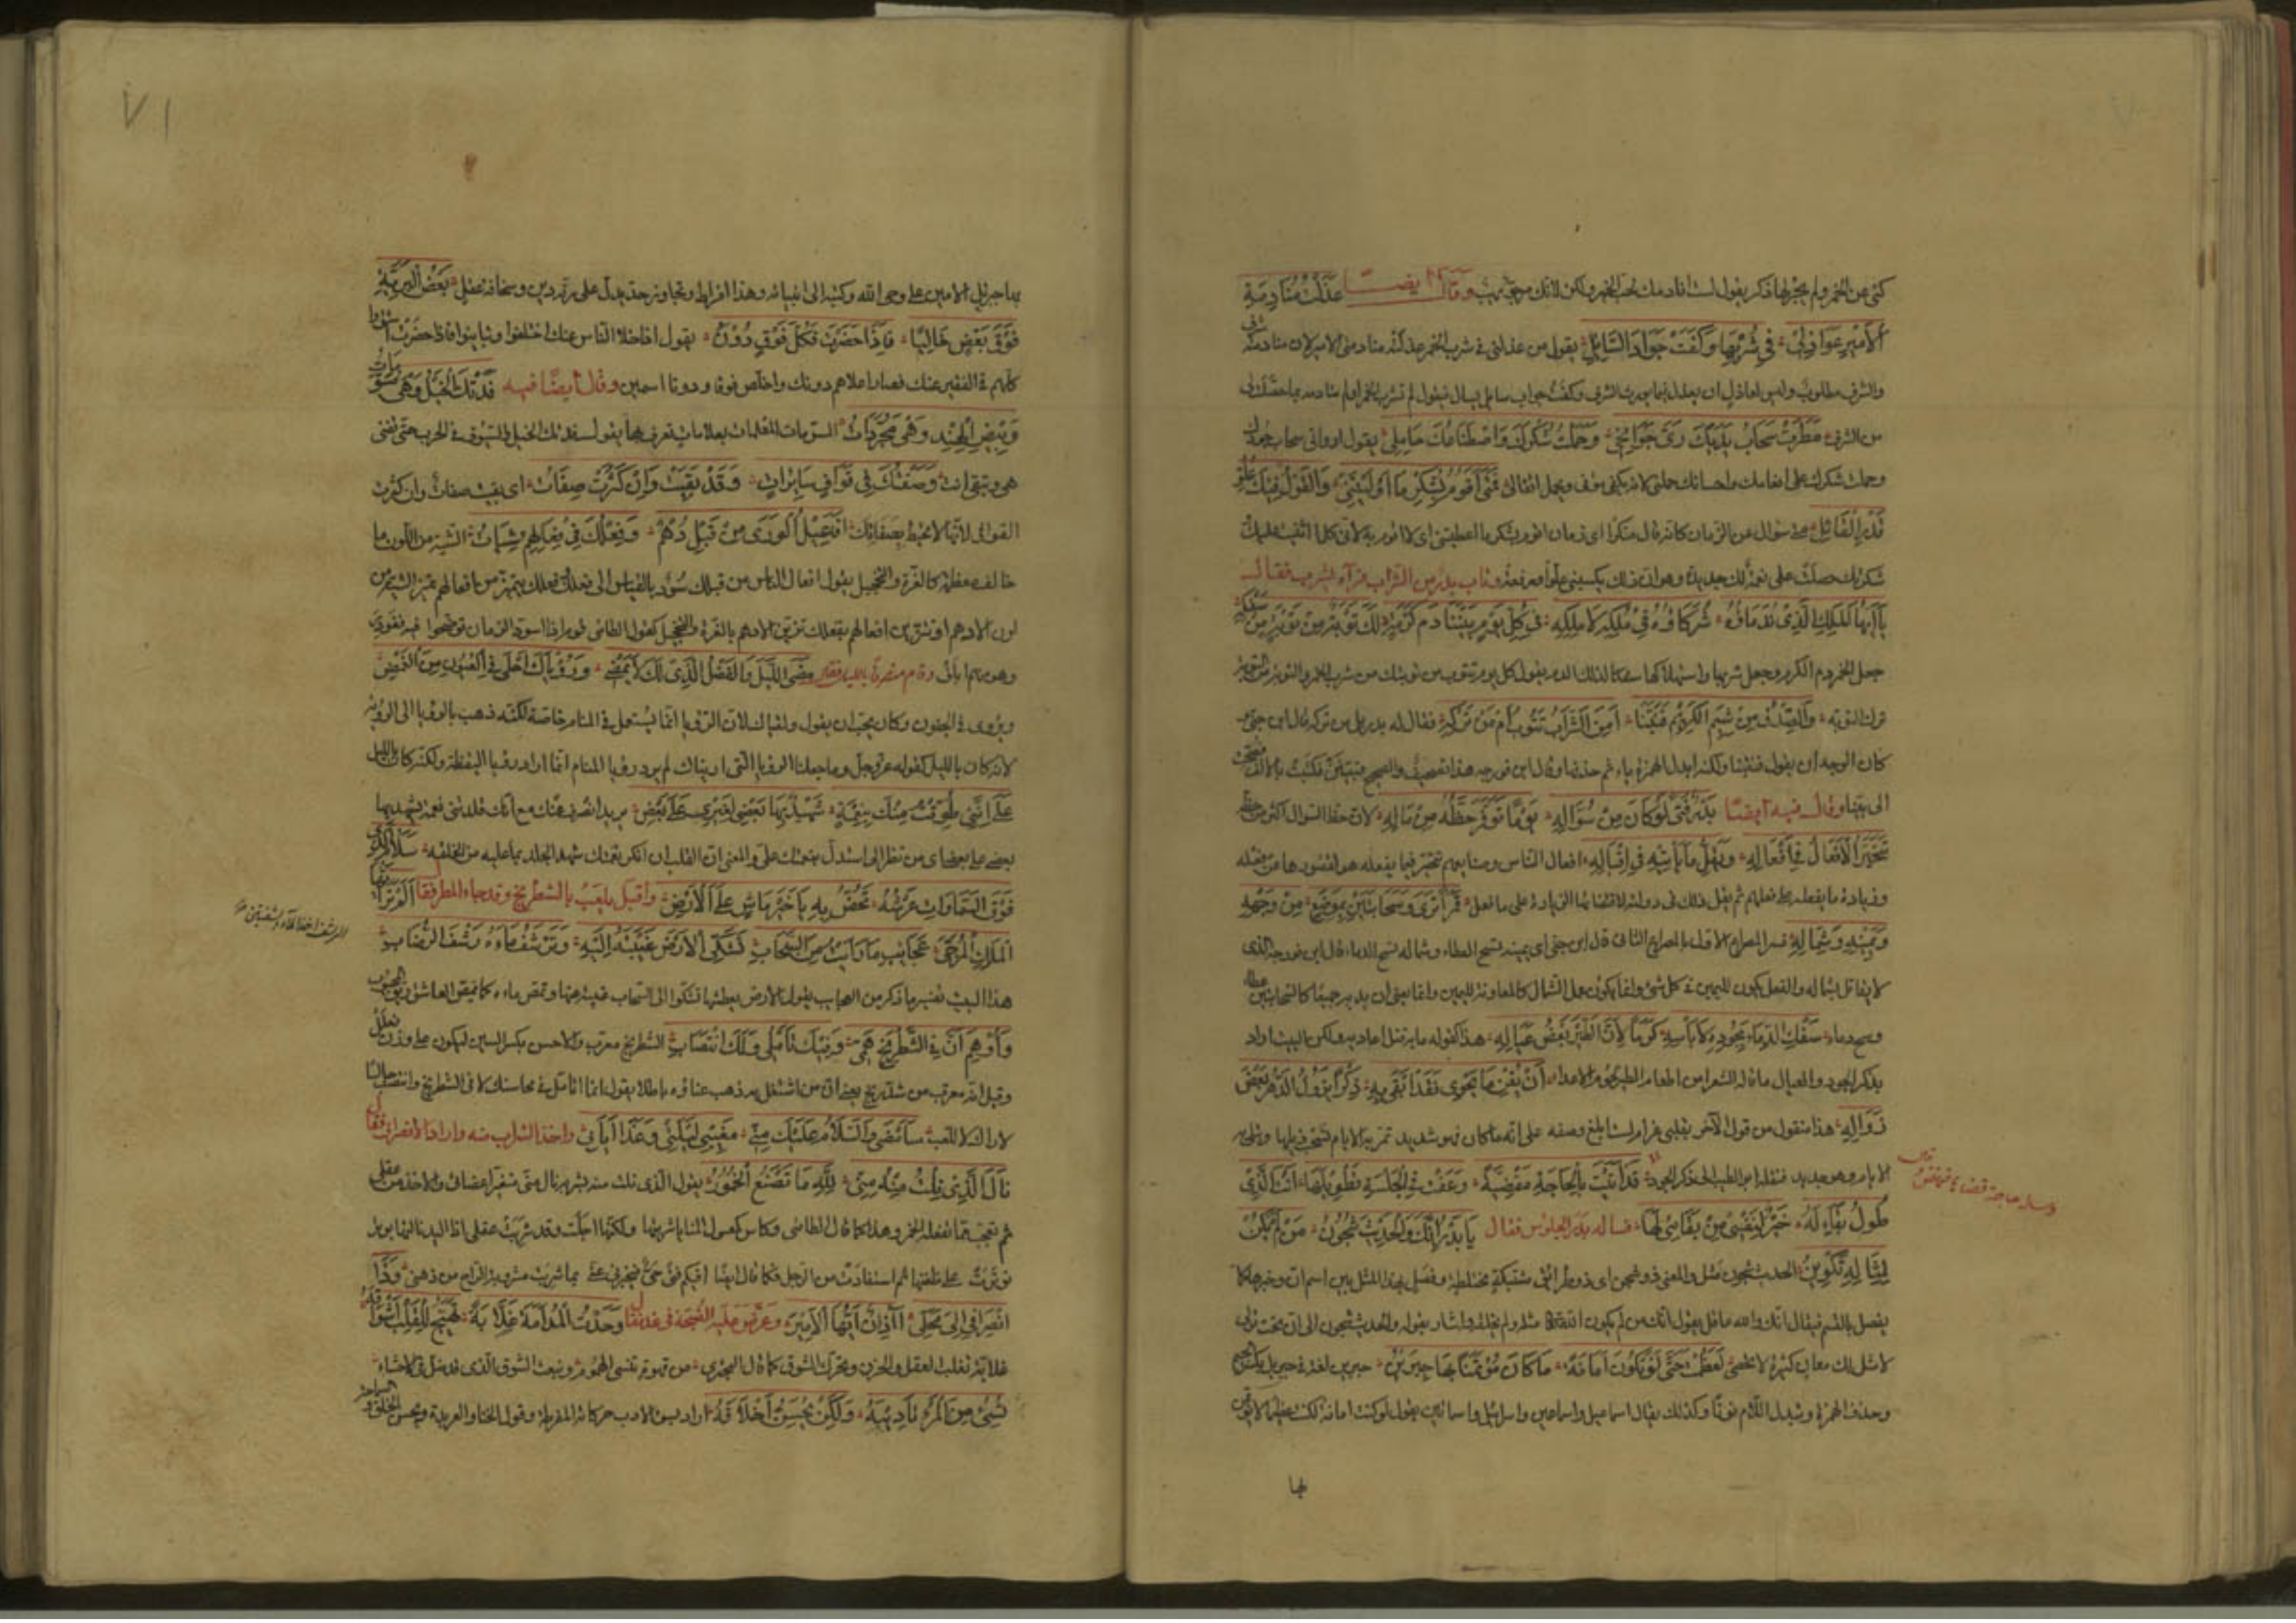 كنى عن الخمر ولم يجر لها ذكر يقول لست انادمك لحب الخمر ولكن لانك مرجو مهيب وقال ايضا عذلت منادمة
الأمير عواذلي في شربها وكفت جواب السائل يقول من عذلني في شرب الخمر عذلته منادمتي الامير لان منادمته
والشرف مطلوب وليس لعاذل ان يعذل فيما يورث الشرف وكفت جواب سائل يسال فيقول لم تشرب الخمر ولم تنادمه
من الشرف مطرت سحاب يديك ري جوانحي وحملت شكرك واصطناعك حاملي يقول ارواني سحاب
وحملت شكرك على انعامك واحسانك حملني فمتى أقوم بشكر ما أوليتني والقول فيك علو
قدر القائل متى سؤال عن الزمان كانه قال منكرا اي زمان اقوم بشكر ما اعطيتني اي لا اقوم به لاني كلما اثنيت عليك
شكرتك حصلت على نعمة لك جديدة وهو ان ذلك يكسبني علوا ورفعة وتاب بدر من الشراب فرآه يشرب فقال
يا أيها الملك الذي ندماؤه شركاؤه في ملكه لا ملكه في كل يوم بيننا دم كرمة لك توبة من توبة من سفكه
جعل الخمر دم الكرم وجعل شربها واستهلاكها سفكا لذلك الدم يقول كل يوم تتوب من توبتك من شرب الخمر والتوبة من التوبة
ترك التوبة والصدق من شيم الكرام فنبنا أمن الشراب تتوب أم من تركه فقال له بدر بل من تركه قال ابن جني
كان الوجه ان يقول فنبئنا ولكنه ابدل الهمزة ياء ثم حذفها وقال ابن فورجه هذا تصحيف والصحيح
وقال فيه ايضا بدر فتى لو كان من سؤاله يوما توفر حظه من ماله لان حظ السؤال اكثر من حظه
تتحير الأفعال في أفعاله ويقل ما يأتيه في إقباله افعال الناس تتحير فيما يفعله
وزيادة ما يفعله على فعلهم ثم يقل ذلك في دولته لاقتضائها الزيادة على ما فعل قمرا ترى وسحابتين بموضع من وجهه
ويمينه وشماله فسر المصراع الاول بالمصراع الثاني قال ابن جني اي يمينه تسح العطاء وشماله تسح الدماء قال ابن فورجه
لا يقاتل بشماله والفعل يكون لليمين في كل شيء وانما يكون عمل الشمال كالمعاونة لليمين وانما يعني ان يديه جميعا كالسحابتين
سفك الدماء بجوده لا بأسه كرما لأن الطير بعض عياله هذا كقوله ما به قتل اعاديه ولكن البيت وزاد
بذكر الجود والعيال ما قاله الشعراء من اطعام الطير لحوم الاعداء أن يفن ما يحوي فقد أبقى به ذكرا يزول الدهر قبل
زواله هذا منقول من قول الآخر
قد أبت بالحاجة مقضية وعفت في الجلسة تطويلها أنت الذي
طول بقاء له خير لنفسي من بقائي لها فساله بدر الجلوس فقال يا بدر إنك والحديث شجون من لم يكن
لمثاله تكوين الحديث شجون مثل والمعنى ذو شجون اي ذو طرائق مشتبكة مختلطة وفصل بهذا المثل بين اسم ان وخبرها كما
يفصل بالقسم فيقال انك والله عاقل يقول انك من لم يكون الله مثله ولم يخلقه واشار بقوله والحديث شجون الى ان تحت قولي
لا مثل لك معان كثيرة لا تحصى لعظمت حتى لو تكون أمانة ما كان مؤتمنا بها جبرين جبرين لغة في جبريل
وحذف الهمزة وتبدل اللام نونا وكذلك يقال اسماعيل واسماعين واسرائيل واسرائين يقول لو كنت امانة لكنت عظيما لا يؤتمن
بها جبريل الامين على وحي الله وكتبه الى انبيائه وهذا افراط وتجاوز حد يدل على رقة دين وسخافة عقل بعض البرية
فوق بعض خاليا فإذا حضرت فكل فوق دون يقول اذا خلا الناس عنك اختلفوا وتباينوا فاذا حضرت استووا
كلهم في التقصير عنك فصار اعلاهم دونك واخلص فوق ودونا اسمين وقال أيضا فيه فدتك الخيل وهي مسومات
وبيض الهند وهي مجردات المسومات المعلمات بعلامات تعرف بها يقول فدتك الخيل والسيوف في الحرب حتى تفنى
هي وتبقى انت وصفتك في قواف سائرات وقد بقيت وإن كثرت صفات اي بقيت صفات وان كثرت
القوافي لانها لا تحيط بصفاتك أفاعيل الورى من قبل دهم وفعلك في فعالهم شيات الشية من اللون ما
خالف معظمه كالغرة والتحجيل يقول افعال الناس من قبلك سود بالقياس الى فعلك وفعلك يتميز من افعالهم تميز الشية من
لون الادهم او تتزين افعالهم بفعلك تزين الادهم بالغرة والتحجيل كقول الطائي
وقام منصرفا بالليل فقال مضى الليل والفضل الذي لك لا يمضي ورؤياك أحلى في العيون من الغمض
ويروى في الجفون وكان يجب ان يقول ولقياك لان الرؤيا انما تستعمل في المنام خاصة لكنه ذهب بالرؤيا الى الرؤية
لانه كان بالليل كقوله عز وجل وما جعلنا الرؤيا التي اريناك لم يرد رؤيا المنام انما اراد رؤيا اليقظة ولكنه كان بالليل
على أنني طوقت منك بنعمة شهيد بها بعضي لغيري على بعضي يريد انصرف عنك مع انك قلدتني نعمة يشهد بها
بعضي على بعضي اي من نظر الي استدل بنعمتك علي والمعنى ان القلب ان انكر نعمتك شهد الجلد بما عليه من الخلعة سلام الذي
فوق السماوات عرشه تخص به يا خير ماش على الأرض واقبل يلعب بالشطرنج وقد جاء المطر فقال ألم تر أيها
الملك المرجى عجائب ما رأيت من السحاب تشكي الأرض غيبته إليه وترشف ماءه رشف الرضاب
هذا البيت تفسير ما ذكر من العجاب يقول الارض بعطشها تشكو الى السحاب غيبته عنها وتمص ماءه كما يمص العاشق ريق المحبوب
وأوهم أن في الشطرنج همي وفيك تأملي ولك انتصابي الشطرنج معرب والاحسن بكسر الشين ليكون على وزن فعلل
وقيل انه معرب من شدرنج يعني ان من اشتغل به ذهب عناؤه باطلا يقول انما اتأمل في محاسنك لا في الشطرنج وانتصب جالسا
لاراك لا للعبه سأمضي والسلام عليك مني مغيبي ليلتي وغدا إيابي واخذ الشراب منه واراد الانصراف فقال
نال الذي نلت منه مني لله ما تصنع الخمور يقول الذي نلت منه بشربه نال مني بتغير اعضائي والاخذ من عقلي
ثم تعجب مما تفعله الخمر وهذا كما قال الطائي وكاس كمعسول الاماني شربتها ولكنها اجلت وقد شربت عقلي اذا اليد نالتها بوتر
توقرت على ضغنها ثم استقادت من الرجل وكما قال ايضا افيكم فتى حي فيخبرني عني بما شربت مشروبة الراح من ذهني وذا
انصرافي إلى محلي أآذن أيها الأمير وعرض عليه الصبحة في غد فقال وجدت المدامة غلابة تهيج للقلب أشواقه
غلابة تغلب العقل والحزن وتحرك الشوق كما قال البحتري من قهوة تنسي الهموم وتبعث الشوق الذي قد ضل في الاحشاء
تسيء من المرء تأديبه ولكن تحسن أخلاقه اراد بسوء الادب حركاته المفرطة وقول الخنا والعربدة وبحسن الخلق السماحة
٧١